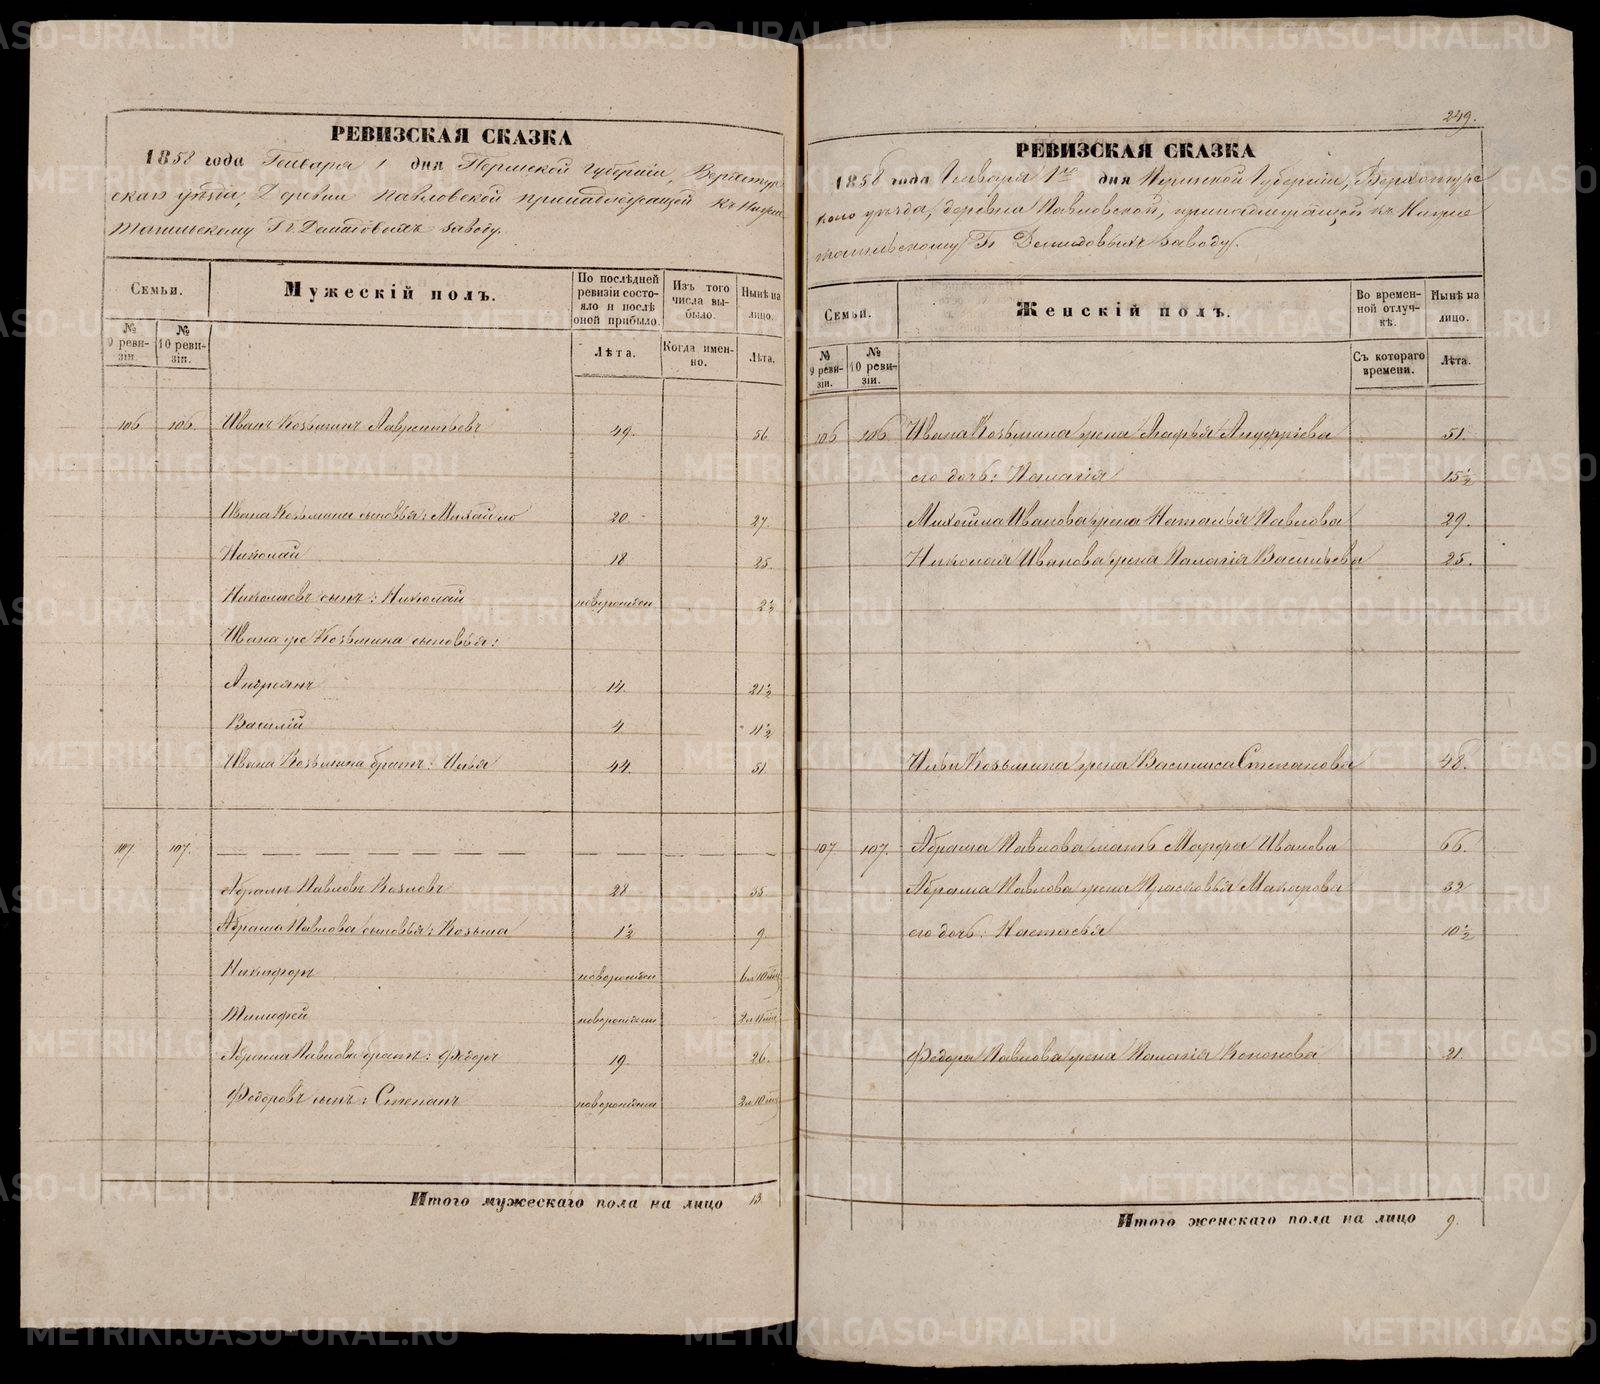 РЕВИЗСКАЯ СКАЗКА
1858 года Генваря 1 дня Пермской Губерніи, Верхотур
скаго уѣзда, Деревни Павловской принадлежащей къ Нижне
Тагильскому Гг. Демидовыхъ заводу.
Семьи.
Мужескій полъ.
По послѣдней ревизіи состояло и послѣ оной прибыло.
Изъ того числа выбыло.
Нынѣ на лицо.
№ 9 ревизіи.
№ 10 ревизіи.
Лѣта.
Когда именно.
Лѣта.
106 106. Иванъ Козьминъ Лаврентьевъ 49. 56
Ивана Козьмина сыновья: Михайло 20 27.
Николай 18 25.
Николаевъ сынъ: Николай новорожден 2½
Ивана же Козьмина сыновья:
Андреянъ 14. 21½
Василій 4 11½
Ивана Козьмина братъ: Илья 44. 51
107. 107.
Абрамъ Павловъ Козловъ 28 35
Абрама Павлова сыновья: Козьма 1½ 9
Никифоръ новорожден 6 л 10 мц
Тимофей новорожден 2 л 11 мц
Абрама Павлова братъ: Федоръ 19. 26.
Федоровъ сынъ: Степанъ новорожден 2 л 10 мц
Итого мужескаго пола на лицо 13
249.
РЕВИЗСКАЯ СКАЗКА
1858 года Генваря 1го дня Пермской Губерніи, Верхотурс
кого уезда, деревни Павловской, принадлежащей къ Нижне
тагильскому Гг Демидовыхъ заводу.
Семьи.
Женскій полъ.
Во временной отлучкѣ.
Нынѣ на лицо.
№ 9 ревизіи.
№ 10 ревизіи.
Съ котораго времени.
Лѣта.
106 106 Ивана Козьмина жена Марья Андреева 51.
его дочь: Палагія 15½
Михайла Иванова жена Наталья Павлова 29.
Николая Иванова жена Палагія Васильева 25.
Ильи Козьмина жена Василиса Степанова 48.
107 107. Абрама Павлова мать Марфа Иванова 66.
Абрама Павлова жена Прасковья Макарова 32
его дочь: Настасья 10½
Федора Павлова жена Палагія Кононова 21.
Итого женскаго пола на лицо 9.
METRIKI.GASO-URAL.RU